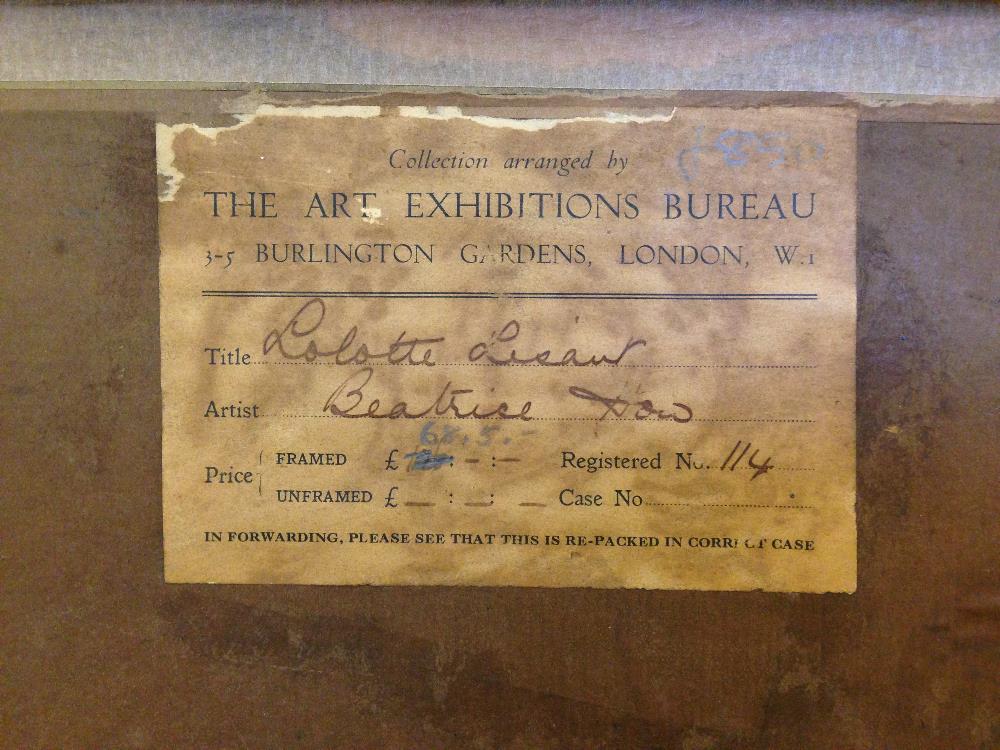 Collection arranged by
THE ART EXHIBITIONS BUREAU
3-5 BURLINGTON GARDENS, LONDON, W.1
Title Lolotte Lisant
Artist Beatrice How
68.5.-
Price FRAMED £ : - : - Registered No. 114
UNFRAMED £ - : - : - Case No
IN FORWARDING, PLEASE SEE THAT THIS IS RE-PACKED IN CORRECT CASE